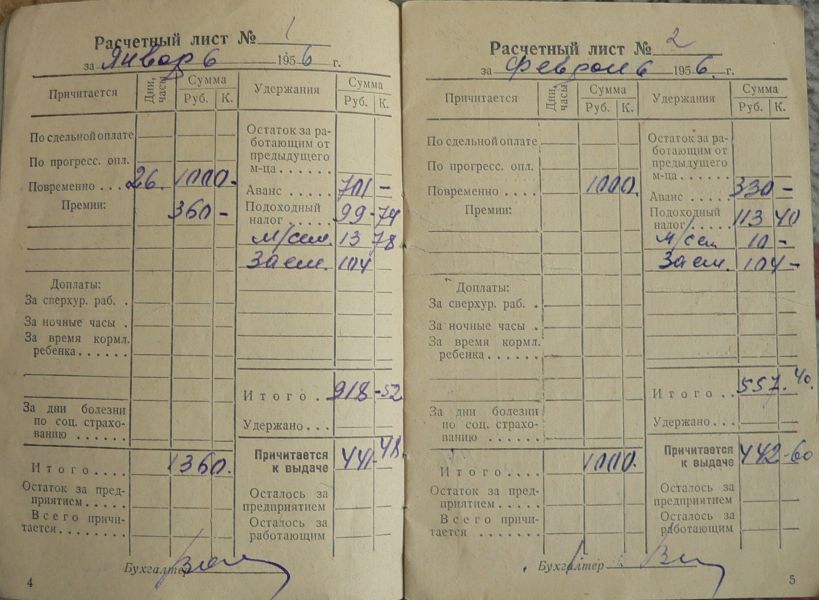 Расчетный лист № 1
за Январь 1956 г.
Причитается
Дни, часы
Сумма
Руб. К.
Удержания
Сумма
Руб. К.
По сдельной оплате
По прогресс. опл.
Повременно . . . . 26 1000 -
Премии: 360 -
Доплаты:
За сверхур. раб. .
За ночные часы .
За время кормл.
ребенка . . . . . .
За дни болезни
по соц. страхо-
ванию . . . . . .
Итого . . . . 1360.
Остаток за пред-
приятием . . . .
Всего причи-
тается . . . . . .
Остаток за ра-
ботающим от
предыдущего
м-ца . . . . . . .
Аванс . . . . . 701 -
Подоходный
налог . . . . . 99 - 74
М/сем. 13 78
Заем. 104
Итого . . 918 - 52
Удержано . . .
Причитается
к выдаче 441 - 48
Осталось за
предприятием
Осталось за
работающим
Бухгалтер
4
Расчетный лист № 2
за Февраль 1956 г.
Причитается
Дни, часы
Сумма
Руб. К.
Удержания
Сумма
Руб. К.
По сдельной оплате
По прогресс. опл.
Повременно . . . . 1000.
Премии:
Доплаты:
За сверхур. раб. .
За ночные часы .
За время кормл.
ребенка . . . . . .
За дни болезни
по соц. страхо-
ванию . . . . . .
Итого . . . . 1000.
Остаток за пред-
приятием . . . .
Всего причи-
тается . . . . . .
Остаток за ра-
ботающим от
предыдущего
м-ца . . . . . . .
Аванс . . . . . 330 -
Подоходный
налог . . . . . 113 40
М/сем 10 -
Заем. 104 -
Итого . . . . 557. 40.
Удержано . . .
Причитается
к выдаче 442 - 60
Осталось за
предприятием
Осталось за
работающим
Бухгалтер
5